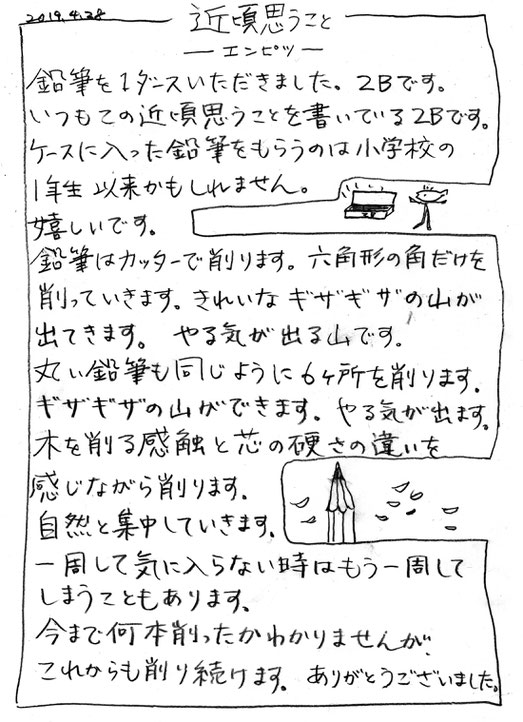 2019.4.28
近頃思うこと
—エンピツ—
鉛筆を1ダースいただきました。2Bです。
いつもこの近頃思うことを書いている2Bです。
ケースに入った鉛筆をもらうのは小学校の
1年生以来かもしれません。
嬉しいです。
鉛筆はカッターで削ります。六角形の角だけを
削っていきます。きれいなギザギザの山が
出てきます。 やる気が出る山です。
丸い鉛筆も同じように6ヶ所を削ります。
ギザギザの山ができます。やる気が出ます。
木を削る感触と芯の硬さの違いを
感じながら削ります。
自然と集中していきます。
一周して気に入らない時はもう一周して
しまうこともあります。
今まで何本削ったかわかりませんが、
これからも削り続けます。ありがとうございました。